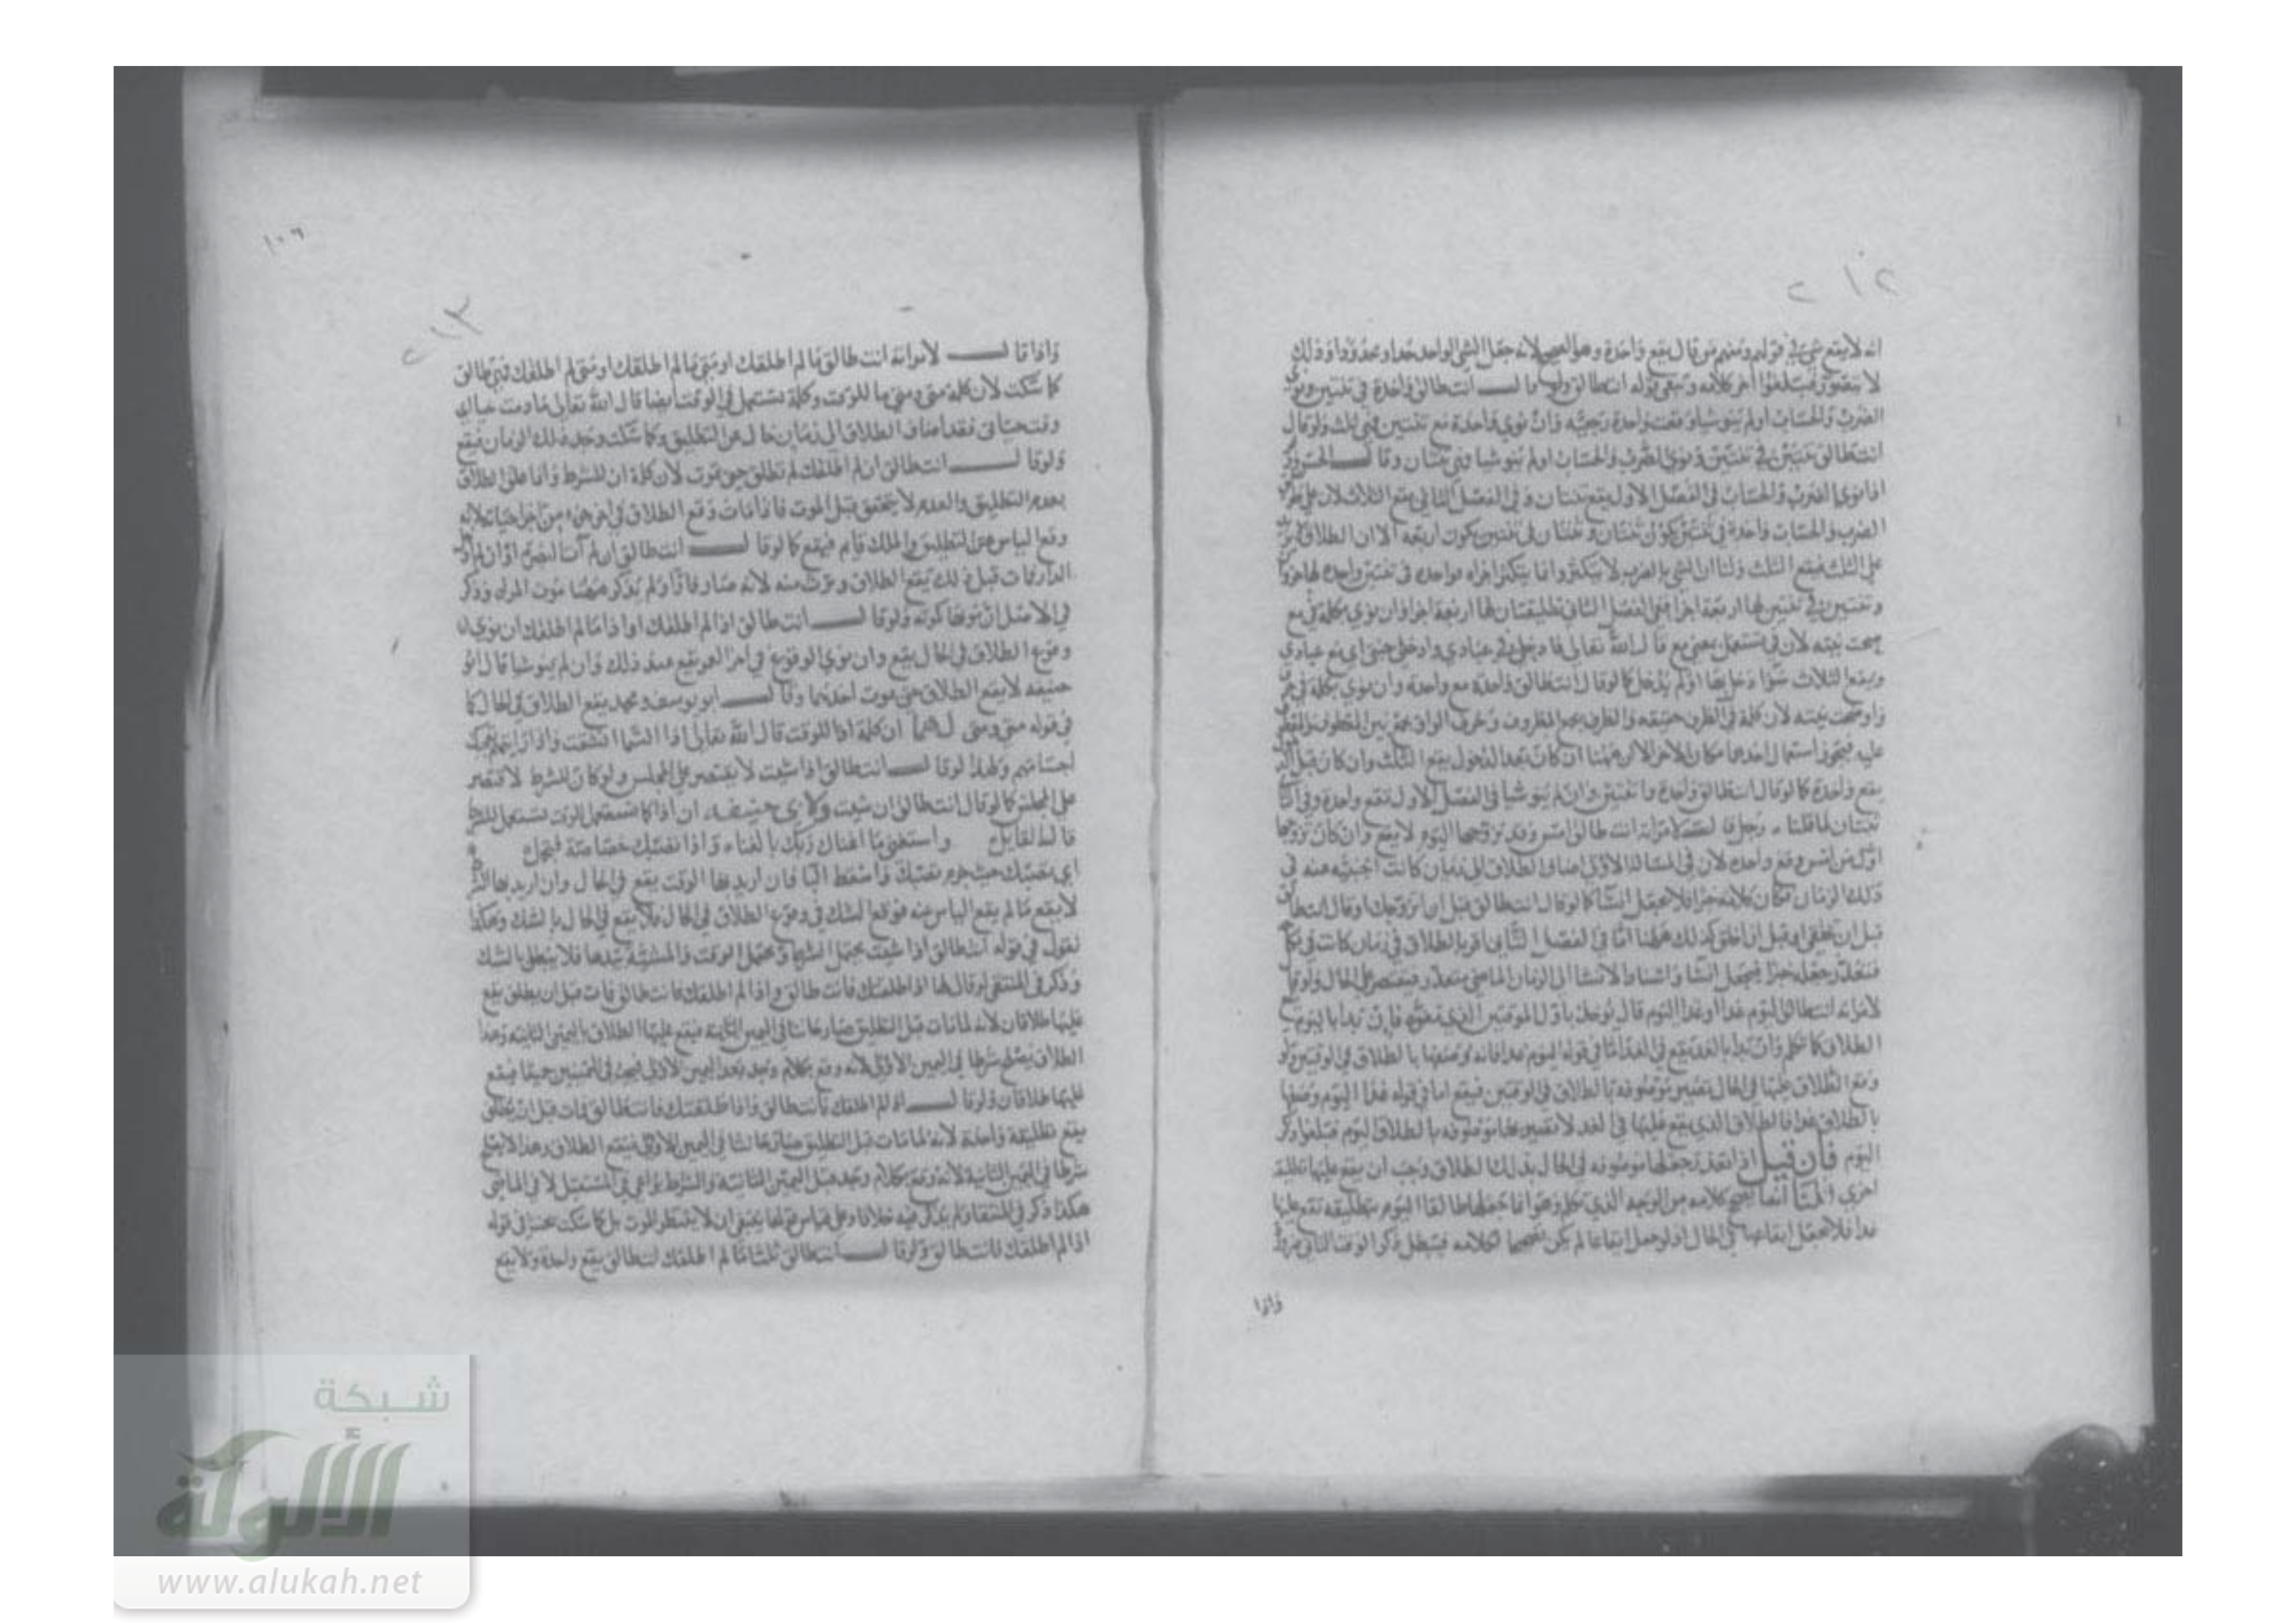 ٢١٢
انه لا يقع شي في قولهم ومنهم من قال يقع واحدة وهو الصحيح لانه جعل الشي الواحد حدا ومحدودا وذلك
لا يتصور فيلغوا اخر كلامه ويبقى قوله انت طالق ولو قال انت طالق واحدة في ثنتين ونوى
الضرب والحساب اولم ينو شيا وقعت واحدة رجعيه وان نوى واحدة مع ثنتين فهي ثلث ولو قال
انت طالق ثنتين في ثنتين ونوى الضرب والحساب اولم ينو شيا فهي ثنتان وقال الحسن
اذا نوى الضرب والحساب في الفصل الاول يقع ثنتان وفي الفصل الثاني يقع الثلاث لان على
الضرب والحساب واحدة في ثنتين يكون ثنتان وثنتان في ثنتين يكون اربعة الا ان الطلاق
على الثلث فيقع الثلث ولنا ان الشي بالضرب لا يتكثر وانما يتكثر اجزاه فواحدة في ثنتين واحدة لها جزوا
وثنتين في ثنتين لها اربعة اجزا ففي الفصل الثاني تطليقتان لها اربعة اجزا وان نوى بكلمة في مع
صحت نيته لان في تستعمل بمعنى مع قال الله تعالى فادخلي في عبادي وادخلي جنتي اي مع عبادي
ويقع الثلاث سوا دخل بها اولم يدخل كما لو قال انت طالق واحدة مع واحدة وان نوى بكلمة في
واو صحت نيته لان كلمة في للظرف حقيقه والظرف يجمع المظروف وحرف الواو يجمع بين المعطوف والمعطوف
عليه فيجوز استعمال احدهما مكان الاخر الا ان ههنا ان كان بعد الدخول يقع الثلث وان كان قبل
يقع واحدة كما لو قال انت طالق واحدة وثنتين وان لم ينو شيا في الفصل الاول تقع واحدة وفي
ثنتان لما قلنا رجل قال لامراته انت طالق امس وقد تزوجها اليوم لا يقع وان كان تزوجها
اول من امس وقع واحدة لان في المسالة الاولى اضاف الطلاق الى زمان كانت اجنبيه عنه في
ذلك الزمان فكان كلامه خبرا فلا يجعل انشا كما لو قال انت طالق قبل ان اتزوجك او قال انت طالق
قبل ان تخلقي او قبل ان اخلق كذلك ههنا اما في الفصل الثاني اقر بالطلاق في زمان كانت في
فتعذر جعله خبرا فيجعل انشا واسناد الانشا الى الزمان الماضي متعذر فيقتصر على الحال ولو قال
لامراته انت طالق اليوم غدا او غدا اليوم قال يوخذ باول الوقتين الذي تفوه فان بدا باليوم
الطلاق كما تكلم وان بدا بالغد يقع في الغد اما في قوله اليوم غدا فانه وصفها بالطلاق في الوقتين ولو
وقع الطلاق عليها في الحال تصير موصوفه بالطلاق في الوقتين فيقع اما في قوله غدا اليوم وصفها
بالطلاق غدا فالطلاق الذي يقع عليها في الغد لا تصير بها موصوفه بالطلاق اليوم فيلغوا ذكر
اليوم فان قيل اذا تعذر جعلها موصوفه في الحال بذلك الطلاق وجب ان يقع عليها تطليقة
اخرى قلنا انما يصح كلامه من الوجه الذي تكلم وهو انما جعلها طالقا اليوم بتطليقه تقع عليها
غدا فلا يجعل ايقاعا في الحال اذ لو جعل ايقاعا لم يكن تصحيحا لكلامه فيبطل ذكر الوقت الثاني
واذا
١٠٦
٢١٣
واذا قال لامراته انت طالق ما لم اطلقك او متى ما لم اطلقك او متى لم اطلقك فهي طالق
كما سكت لان كلمة متى ومتى ما للوقت وكلمة تستعمل في الوقت ايضا قال الله تعالى ما دمت حيا اي
وقت حياتي فقد اضاف الطلاق الى زمان خال عن التطليق وكما سكت وجد ذلك الزمان فيقع
ولو قال انت طالق ان لم اطلقك لم تطلق حتى يموت لان كلمة ان للشرط وانما علق الطلاق
بعدم التطليق والعدم لا يتحقق قبل الموت فاذا مات وقع الطلاق في اخر جزء من اجزا حياته لانه
وقع الياس عن التطليق والملك قايم فيقع كما لو قال انت طالق ان لم آت البصرة او ان لم
الدار فمات قبل ذلك يقع الطلاق وترث منه لانه صار فارا ولم يذكر ههنا موت المراه وذكر
في الاصل ان موتها كموته ولو قال انت طالق اذا لم اطلقك او اذا ما لم اطلقك ان نوى
وقوع الطلاق في الحال يقع وان نوى الوقوع في اخر العمر يقع عند ذلك وان لم ينو شيا قال ابو
حنيفه لا يقع الطلاق حتى يموت احدهما وقال ابو يوسف ومحمد يقع الطلاق في الحال كما
في قوله متى ومتى لهما ان كلمة اذا للوقت قال الله تعالى اذا السما انشقت واذا رايتهم تعجبك
اجسامهم ولهذا لو قال انت طالق اذا شيت لا يقتصر على المجلس ولو كان للشرط لاقتصر
على المجلس كما لو قال انت طالق ان شيت ولابي حنيفه ان اذا كما تستعمل للوقت تستعمل للشرط
قال القايل واستغن ما اغناك ربك بالغناء واذا تصبك خصاصة فتجمل
اي تصبك حيث جزم تصبك واسقط اليا فان اريد بها الوقت يقع في الحال وان اريد بها الشرط
لا يقع ما لم يقع الياس عنه فوقع الشك في وقوع الطلاق في الحال فلا يقع في الحال بالشك وهكذا
نقول في قوله انت طالق اذا شيت يحتمل الشرط ويحتمل الوقت والمشية بيدها فلا يبطل بالشك
وذكر في المنتقى لو قال لها اذا طلقتك فانت طالق واذا لم اطلقك فانت طالق فمات قبل ان يطلق يقع
عليها طلاقان لانه لما مات قبل التطليق صار حانثا في اليمين الثانية فيقع عليها الطلاق باليمين الثانية وهذا
الطلاق يصلح شرطا في اليمين الاولى لانه وقع بكلام وجد بعد اليمين الاولى فيحنث في اليمينين جميعا فيقع
عليها طلاقان ولو قال اذا لم اطلقك فانت طالق واذا طلقتك فانت طالق فمات قبل ان يطلق
يقع تطليقة واحدة لانه لما مات قبل التطليق صار حانثا في اليمين الاولى فيقع الطلاق وهذا لا يصلح
شرطا في اليمين الثانية لانه وقع بكلام وجد قبل اليمين الثانية والشرط يراعى في المستقبل لا في الماضي
هكذا ذكر في المنتقا ولم يذكر فيه خلافا وعلى قياس قولهما ينبغي ان لا ينتظر الموت بل كما سكت يحنث في قوله
اذا لم اطلقك فانت طالق ولو قال انت طالق ثلثا ما لم اطلقك انت طالق يقع واحدة ولا يقع
شبكة
الألوكة
www.alukah.net